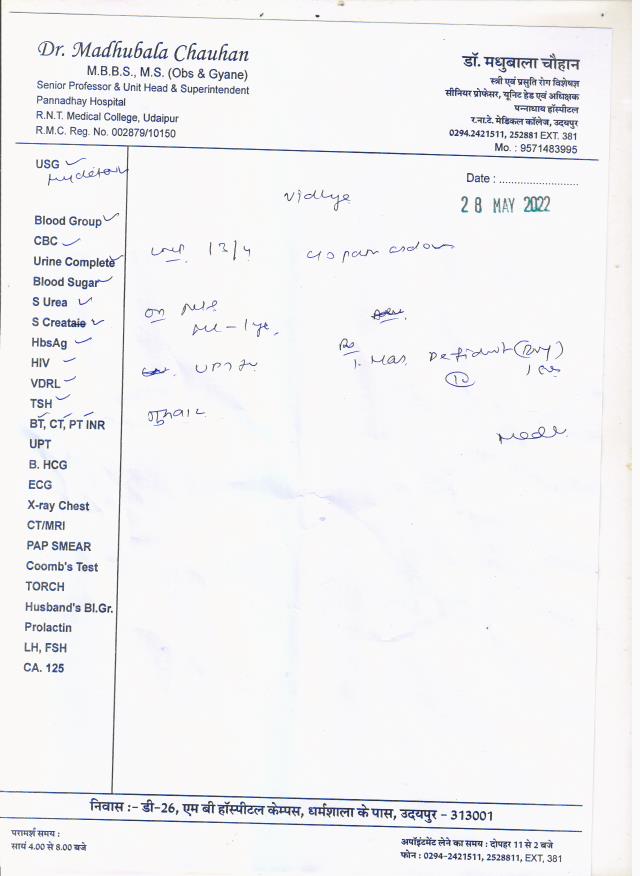 Dr. Madhubala Chauhan
M.B.B.S., M.S. (Obs & Gyane)
Senior Professor & Unit Head & Superintendent
Pannadhay Hospital
R.N.T. Medical College, Udaipur
R.M.C. Reg. No. 002879/10150
डॉ. मधुबाला चौहान
स्त्री एवं प्रसुति रोग विशेषज्ञ
सीनियर प्रोफेसर, यूनिट हेड एवं अधिक्षक
पन्नाधाय हॉस्पीटल
र.ना.टे. मेडिकल कॉलेज, उदयपुर
0294.2421511, 252881 EXT. 381
Mo. : 9571483995
USG
Date : ..........................
28 MAY 2022
Blood Group
CBC
Urine Complete
Blood Sugar
S Urea
S Creataie
HbsAg
HIV
VDRL
TSH
BT, CT, PT INR
UPT
B. HCG
ECG
X-ray Chest
CT/MRI
PAP SMEAR
Coomb's Test
TORCH
Husband's Bl.Gr.
Prolactin
LH, FSH
CA. 125
13/4
c/o pain
निवास :- डी-26, एम बी हॉस्पीटल केम्पस, धर्मशाला के पास, उदयपुर - 313001
परामर्श समय :
सायं 4.00 से 8.00 बजे
अपॉइंटमेंट लेने का समय : दोपहर 11 से 2 बजे
फोन : 0294-2421511, 2528811, EXT, 381